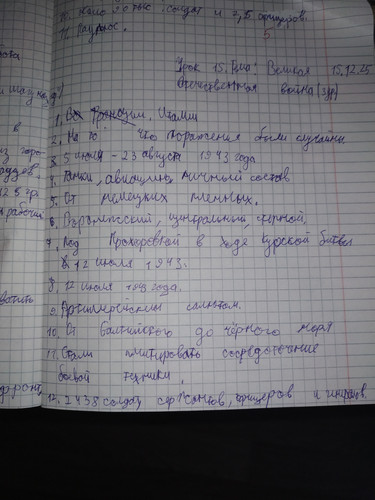 солдат и офицеров.
5
Урок 15. Тема: Великая 15.12.25
Отечественная война (зур)
1. Во Франции, Италии
2. На то что поражения были случайны
3. 5 июля - 23 августа 1943 года
4. Танки, авиацию, личный состав
5. От немецких пленных.
6. Воронежский, центральный, степной.
7. Под Прохоровкой в ходе Курской битвы
в 12 июля 1943.
8. 12 июля 1943 года.
9. Артиллерийским салютом.
10. От Балтийского до чёрного моря
11. Стали имитировать сосредоточение
боевой техники.
12. 2438 солдат, сержантов, офицеров и генералов.